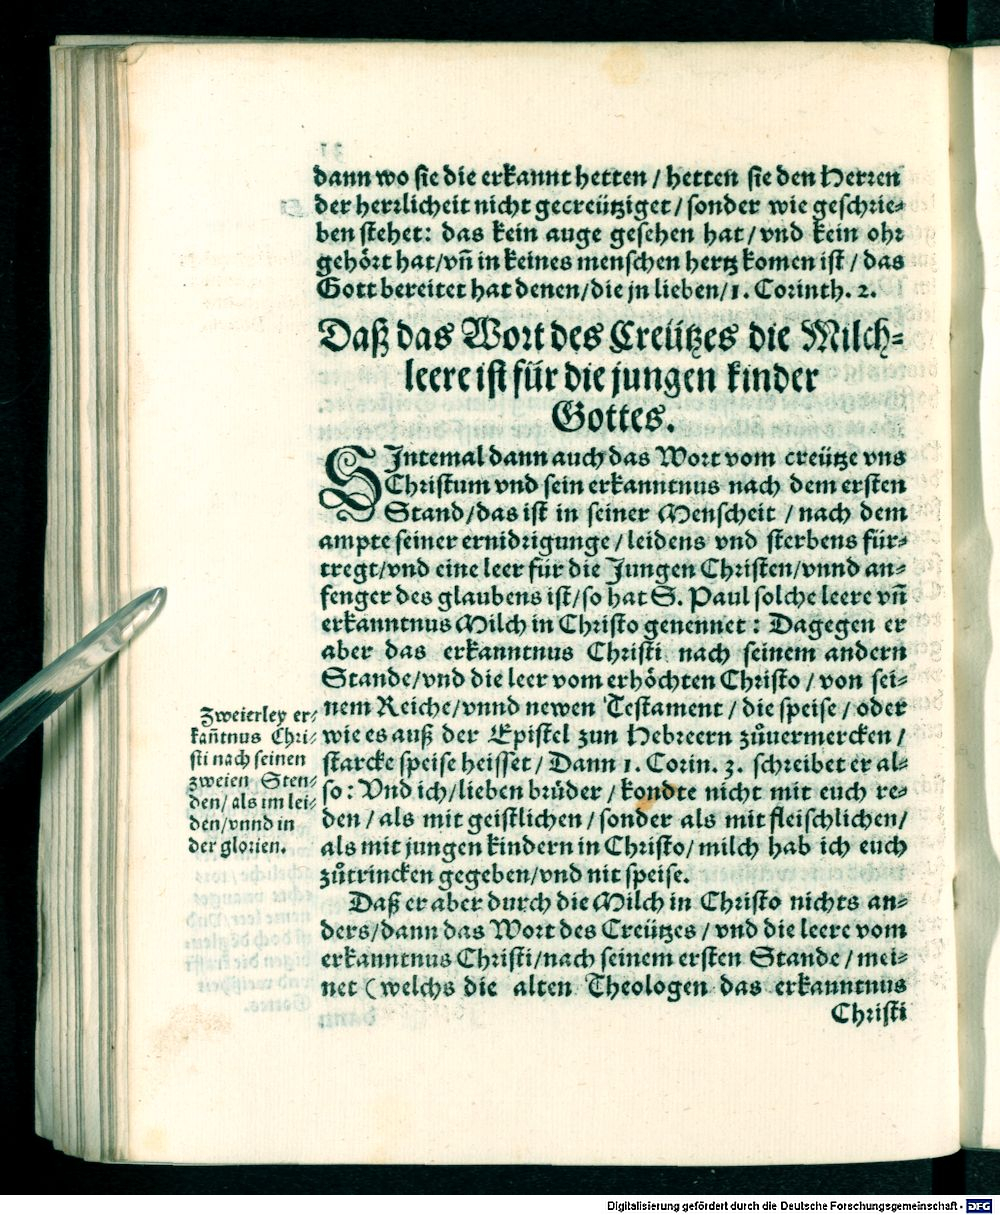 dann wo sie die erkannt hetten / hetten sie den Herren
der herrlicheit nicht gecreütziget / sonder wie geschrie-
ben stehet: das kein auge gesehen hat / vnd kein ohr
gehört hat / vñ in keines menschen hertz komen ist / das
Gott bereitet hat denen / die jn lieben / 1. Corinth. 2.
Daß das Wort des Creützes die Milch-
leere ist für die jungen kinder
Gottes.
SIntemal dann auch das Wort vom creütze vns
Christum vnd sein erkanntnus nach dem ersten
Stand / das ist in seiner Menscheit / nach dem
ampte seiner ernidrigunge / leidens vnd sterbens für-
tregt / vnd eine leer für die Jungen Christen / vnnd an-
fenger des glaubens ist / so hat S. Paul solche leere vñ
erkanntnus Milch in Christo genennet: Dagegen er
aber das erkanntnus Christi nach seinem andern
Stande / vnd die leer vom erhöchten Christo / von sei-
nem Reiche / vnnd newen Testament / die speise / oder
wie es auß der Epistel zun Hebreern zůuermercken /
starcke speise heisset / Dann 1. Corin. 3. schreibet er al-
so: Vnd ich / lieben brüder / kondte nicht mit euch re-
den / als mit geistlichen / sonder als mit fleischlichen /
als mit jungen kindern in Christo / milch hab ich euch
zůtrincken gegeben / vnd nit speise.
Zweierley er-
kañtnus Chri-
sti nach seinen
zweien Sten-
den / als im lei-
den / vnnd in
der glorien.
Daß er aber durch die Milch in Christo nichts an-
ders / dann das Wort des Creützes / vnd die leere vom
erkanntnus Christi / nach seinem ersten Stande / mei-
net (welchs die alten Theologen das erkanntnus
Christi
Digitalisierung gefördert durch die Deutsche Forschungsgemeinschaft - DFG